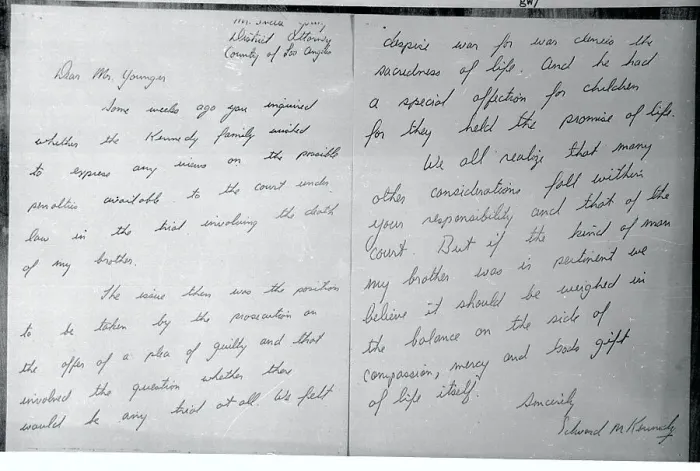 gw/
District Attorney
County of Los Angeles
Dear Mr. Younger
Some weeks ago you inquired
whether the Kennedy family wished
to express any views on the possible
penalties available to the court under
law in the trial involving the death
of my brother.
The issue then was the position
to be taken by the prosecution on
the offer of a plea of guilty and that
involved the question whether there
would be any trial at all. We felt
despise war for war denies the
sacredness of life. And he had
a special affection for children
for they held the promise of life.
We all realize that many
other considerations fall within
your responsibility and that of the
court. But if the kind of man
my brother was is pertinent we
believe it should be weighed in
the balance on the side of
compassion, mercy and Gods gift
of life itself.
Sincerely
Edward M Kennedy